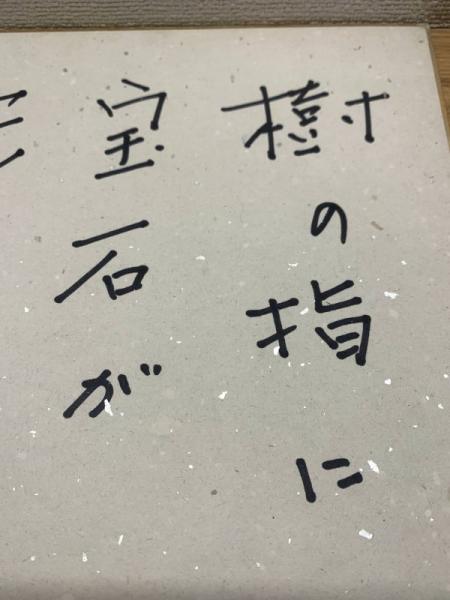 樹の指に
宝石が